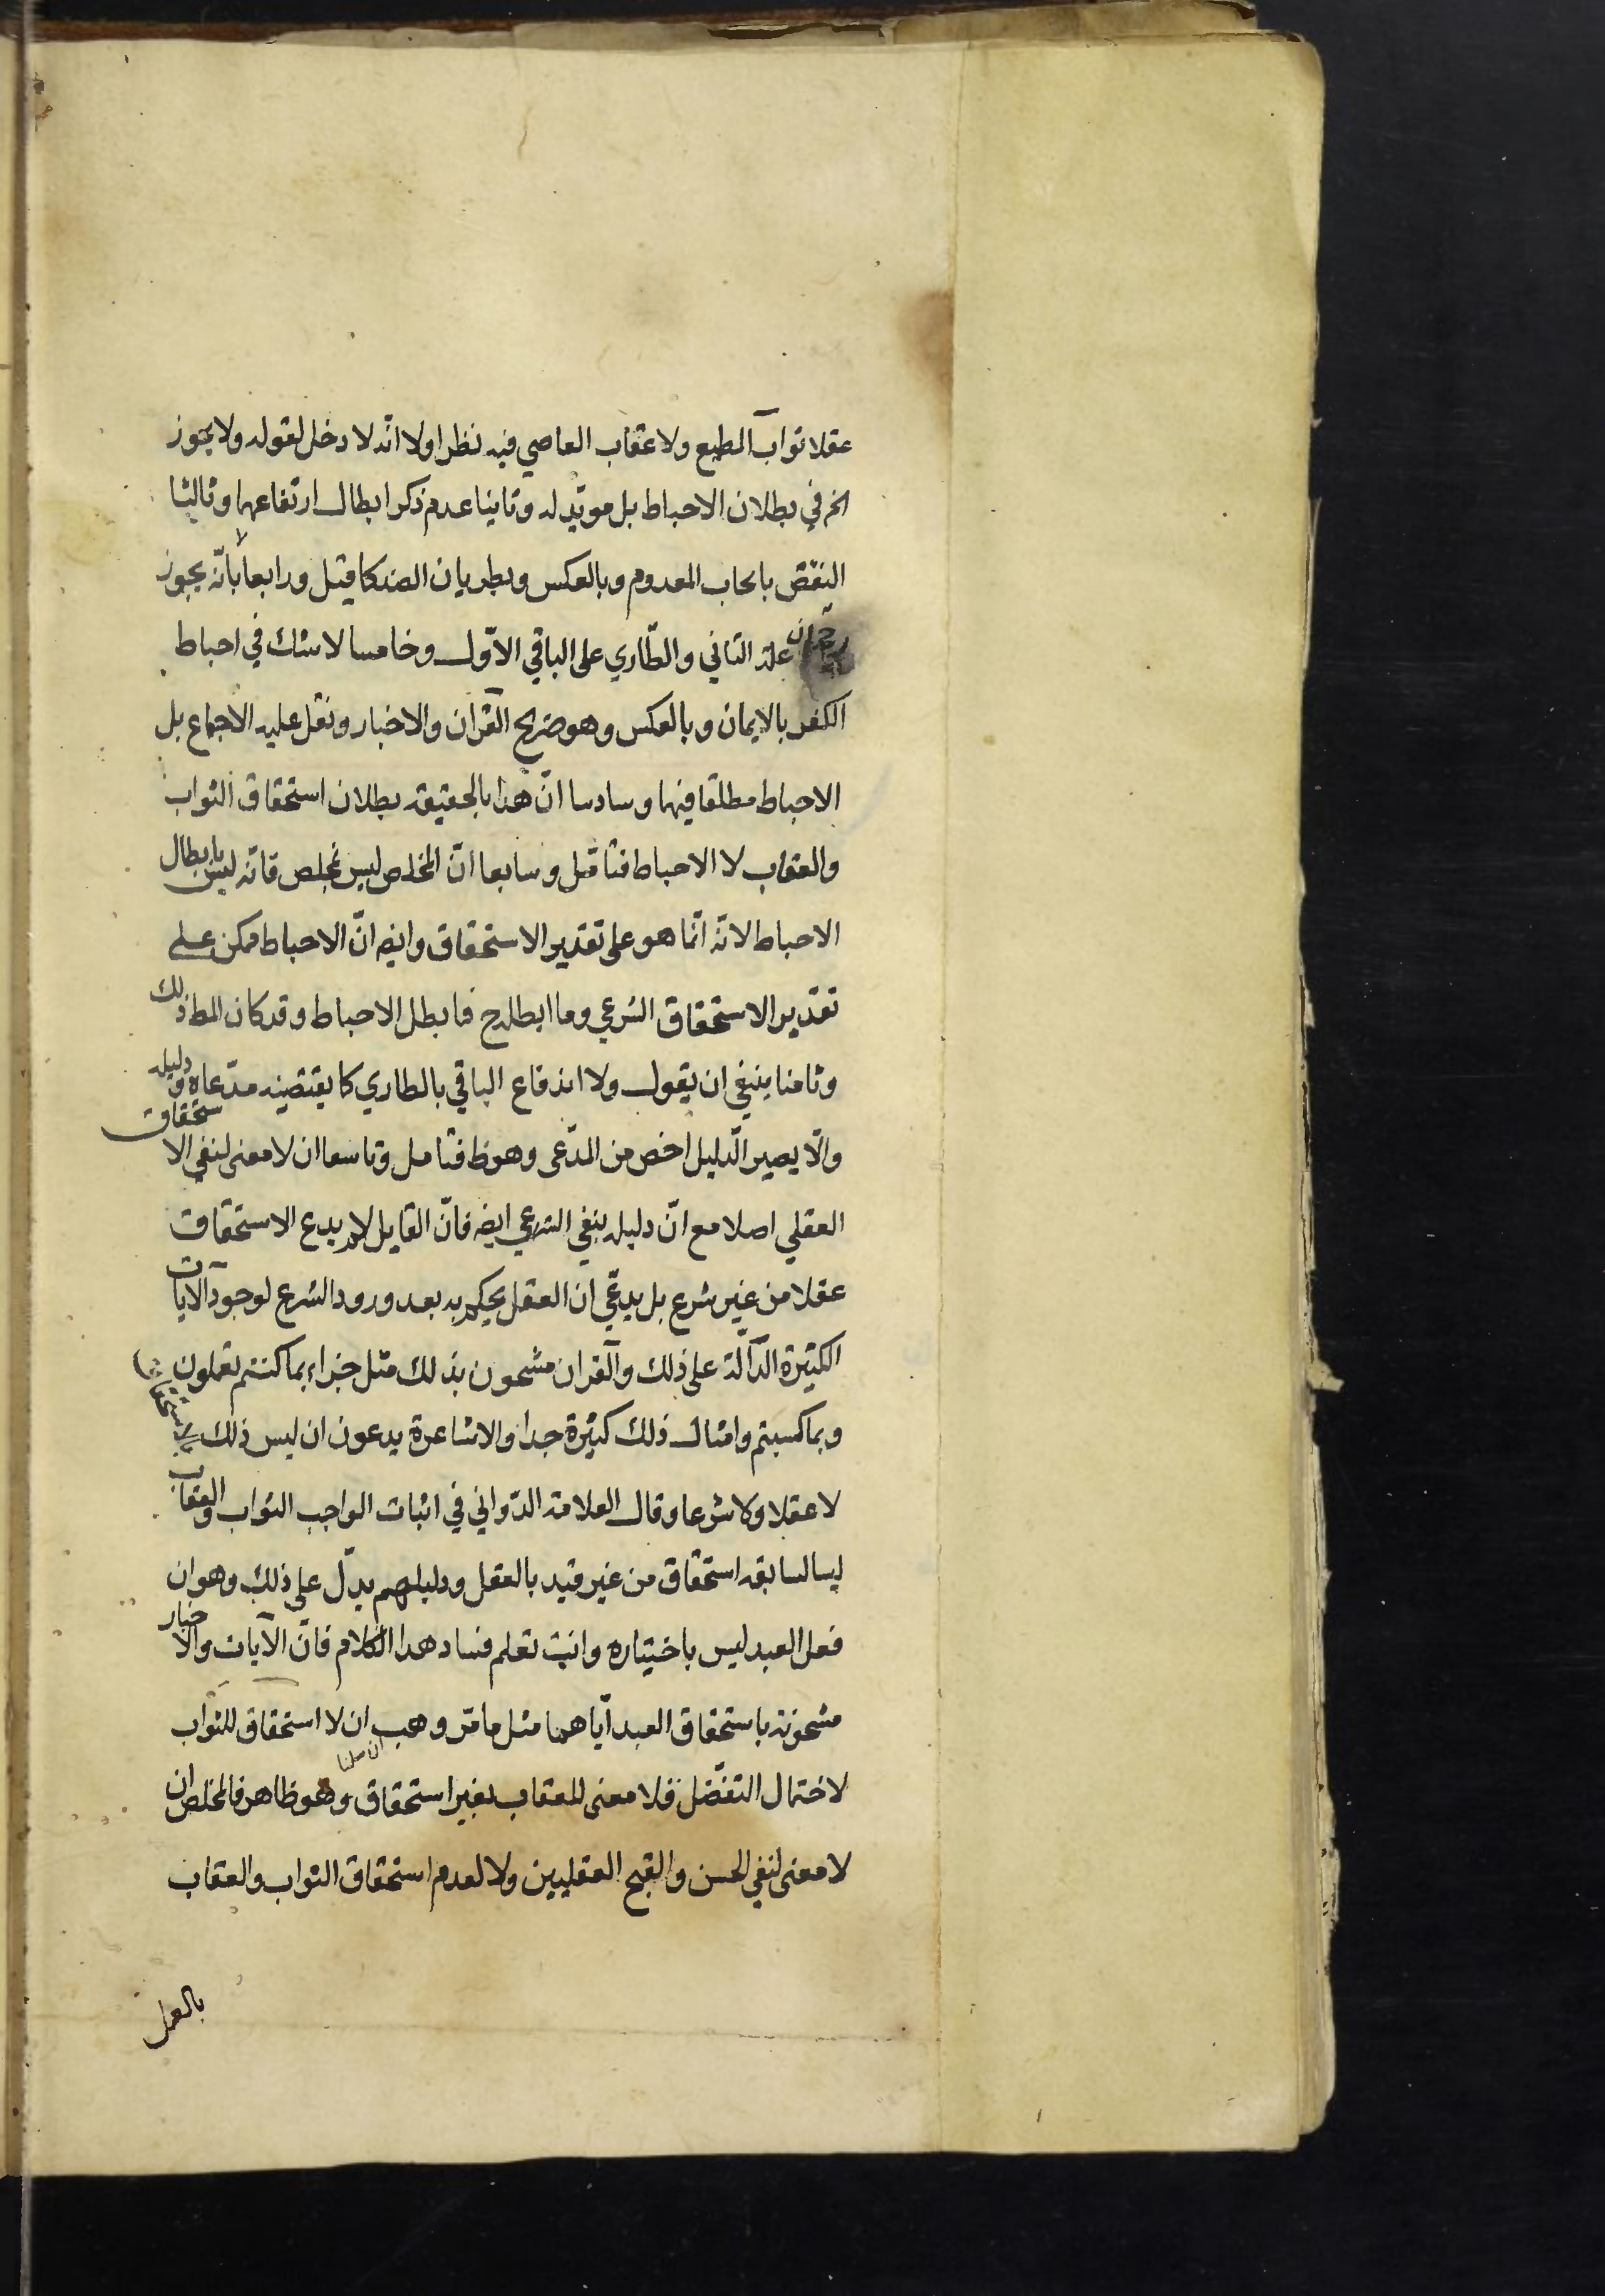 عقلا ثواب المطيع ولا عقاب العاصي فيه نظر اولا انه لا دخل لقوله ولا يجوز
الخ في بطلان الاحباط بل مويّد له وثانيا عدم ذكر ابطال ارتفاعهما وثالثا
النقض بايجاب المعدوم وبالعكس وبطريان الضد كما قيل ورابعا بانّه لا يجوز
رجحان علة الثاني والطّاري على الباقي الاوّل وخامسا لا شك في احباط
الكفر بالايمان وبالعكس وهو صريح القرآن والاخبار ونقل عليه الاجماع بل
الاحباط مطلقا فيهما وسادسا انّ هذا بالحقيقة بطلان استحقاق الثواب
والعقاب لا الاحباط فتامّل وسابعا انّ المخلص ليس بمخلص فانّه ليس بابطال
الاحباط لانّه انّما هو على تقدير الاستحقاق وايضه انّ الاحباط ممكن على
تقدير الاستحقاق الشرعي وما ابطله ح فما بطل الاحباط وقد كان المط ذلك
وثامنا ينبغي ان يقول ولا اندفاع الباقي بالطاري كما يقتضيه مدّعاه ودليله
والّا يصير الّدليل اخص من المدّعى وهو ظ فتامل وتاسعا ان لا معنى لنفي الاستحقاق
العقلي اصلا مع انّ دليله ينفي الشرعي ايضه فانّ القايل لا يدع الاستحقاق
عقلا من غير شرع بل يدعّي ان العقل يحكم به بعد ورود الشرع لوجود الآيات
الكثيرة الدّالّة على ذلك والقرآن مشحون بذلك مثل جزاء بما كنتم تعملون
وبما كسبتم وامثال ذلك كثيرة جدا والاشاعرة يدعون ان ليس ذلك بالاستحقاق
لا عقلا ولا شرعا وقال العلامة الدّواني في اثبات الواجب الثواب والعقاب
ليسا لسابقة استحقاق من غير قيد بالعقل ودليلهم يدلّ على ذلك وهو ان
فعل العبد ليس باختياره وانت تعلم فساد هذا الكلام فانّ الآيات والاخبار
مشحونة باستحقاق العبد ايّاهما مثل ما مرّ وهب ان لا استحقاق للثواب
لاحتمال التفضّل فلا معنى للعقاب بغير استحقاق وهو ظاهر فالمخلص ان
لا معنى لنفي الحسن والقبح العقليين ولا لعدم استحقاق الثواب والعقاب
بالعمل